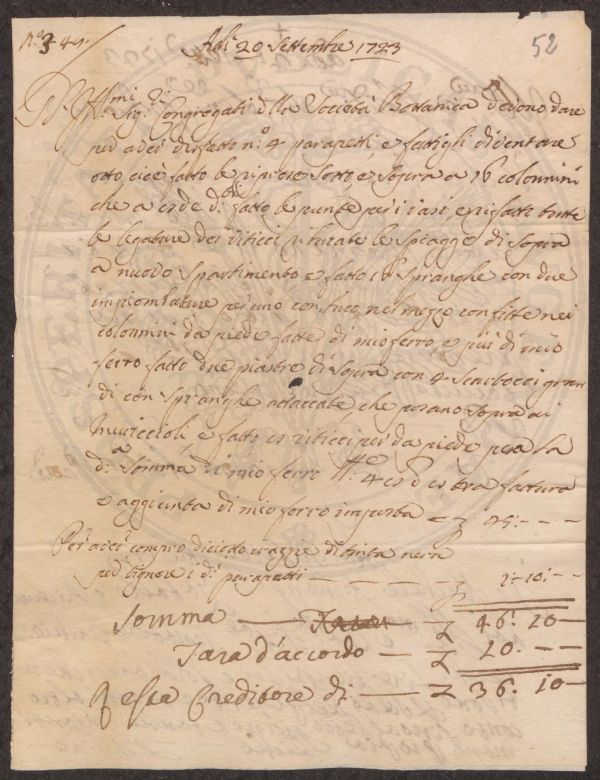 N.o 3 49
Adi 20 Settembre 1723
52
Ill.mi Sig.ri Congregati della Società Bottanica devono dare
per avei disfatto n.o 4 parapetti e fattigli diventare
otto cioè fatto le riprese sotto, e sopra a 16 colonnini
che a otde d.i fatto le punte per i vasi, e rifatti tutte
le legature dei viticci, le spiagge di sopra
a nuovo spartimento e fatto 16 spranghe con due
impiombature per uno con buco nel mezo confitte nei
colonnini da piede fatte di mio ferro, e più di mio
ferro fatto due piastre di sopra con 4 Scartocci gran
di con spranghe attaccate che posano sopra ai
muriccioli e fatto viticci per da piede pesa la
d.a Somma di mio ferro tra fattura
e aggiunta di mio ferro importa £ 45.- - -
Per avei compro diciotto crazzie di tinta nera
per tignere i d.i parapetti - - - £ 1-10:-
Somma £ 46. 10 -
Tara d'accordo - £ 10. - -
Resta Creditore di - £ 36. 10 -